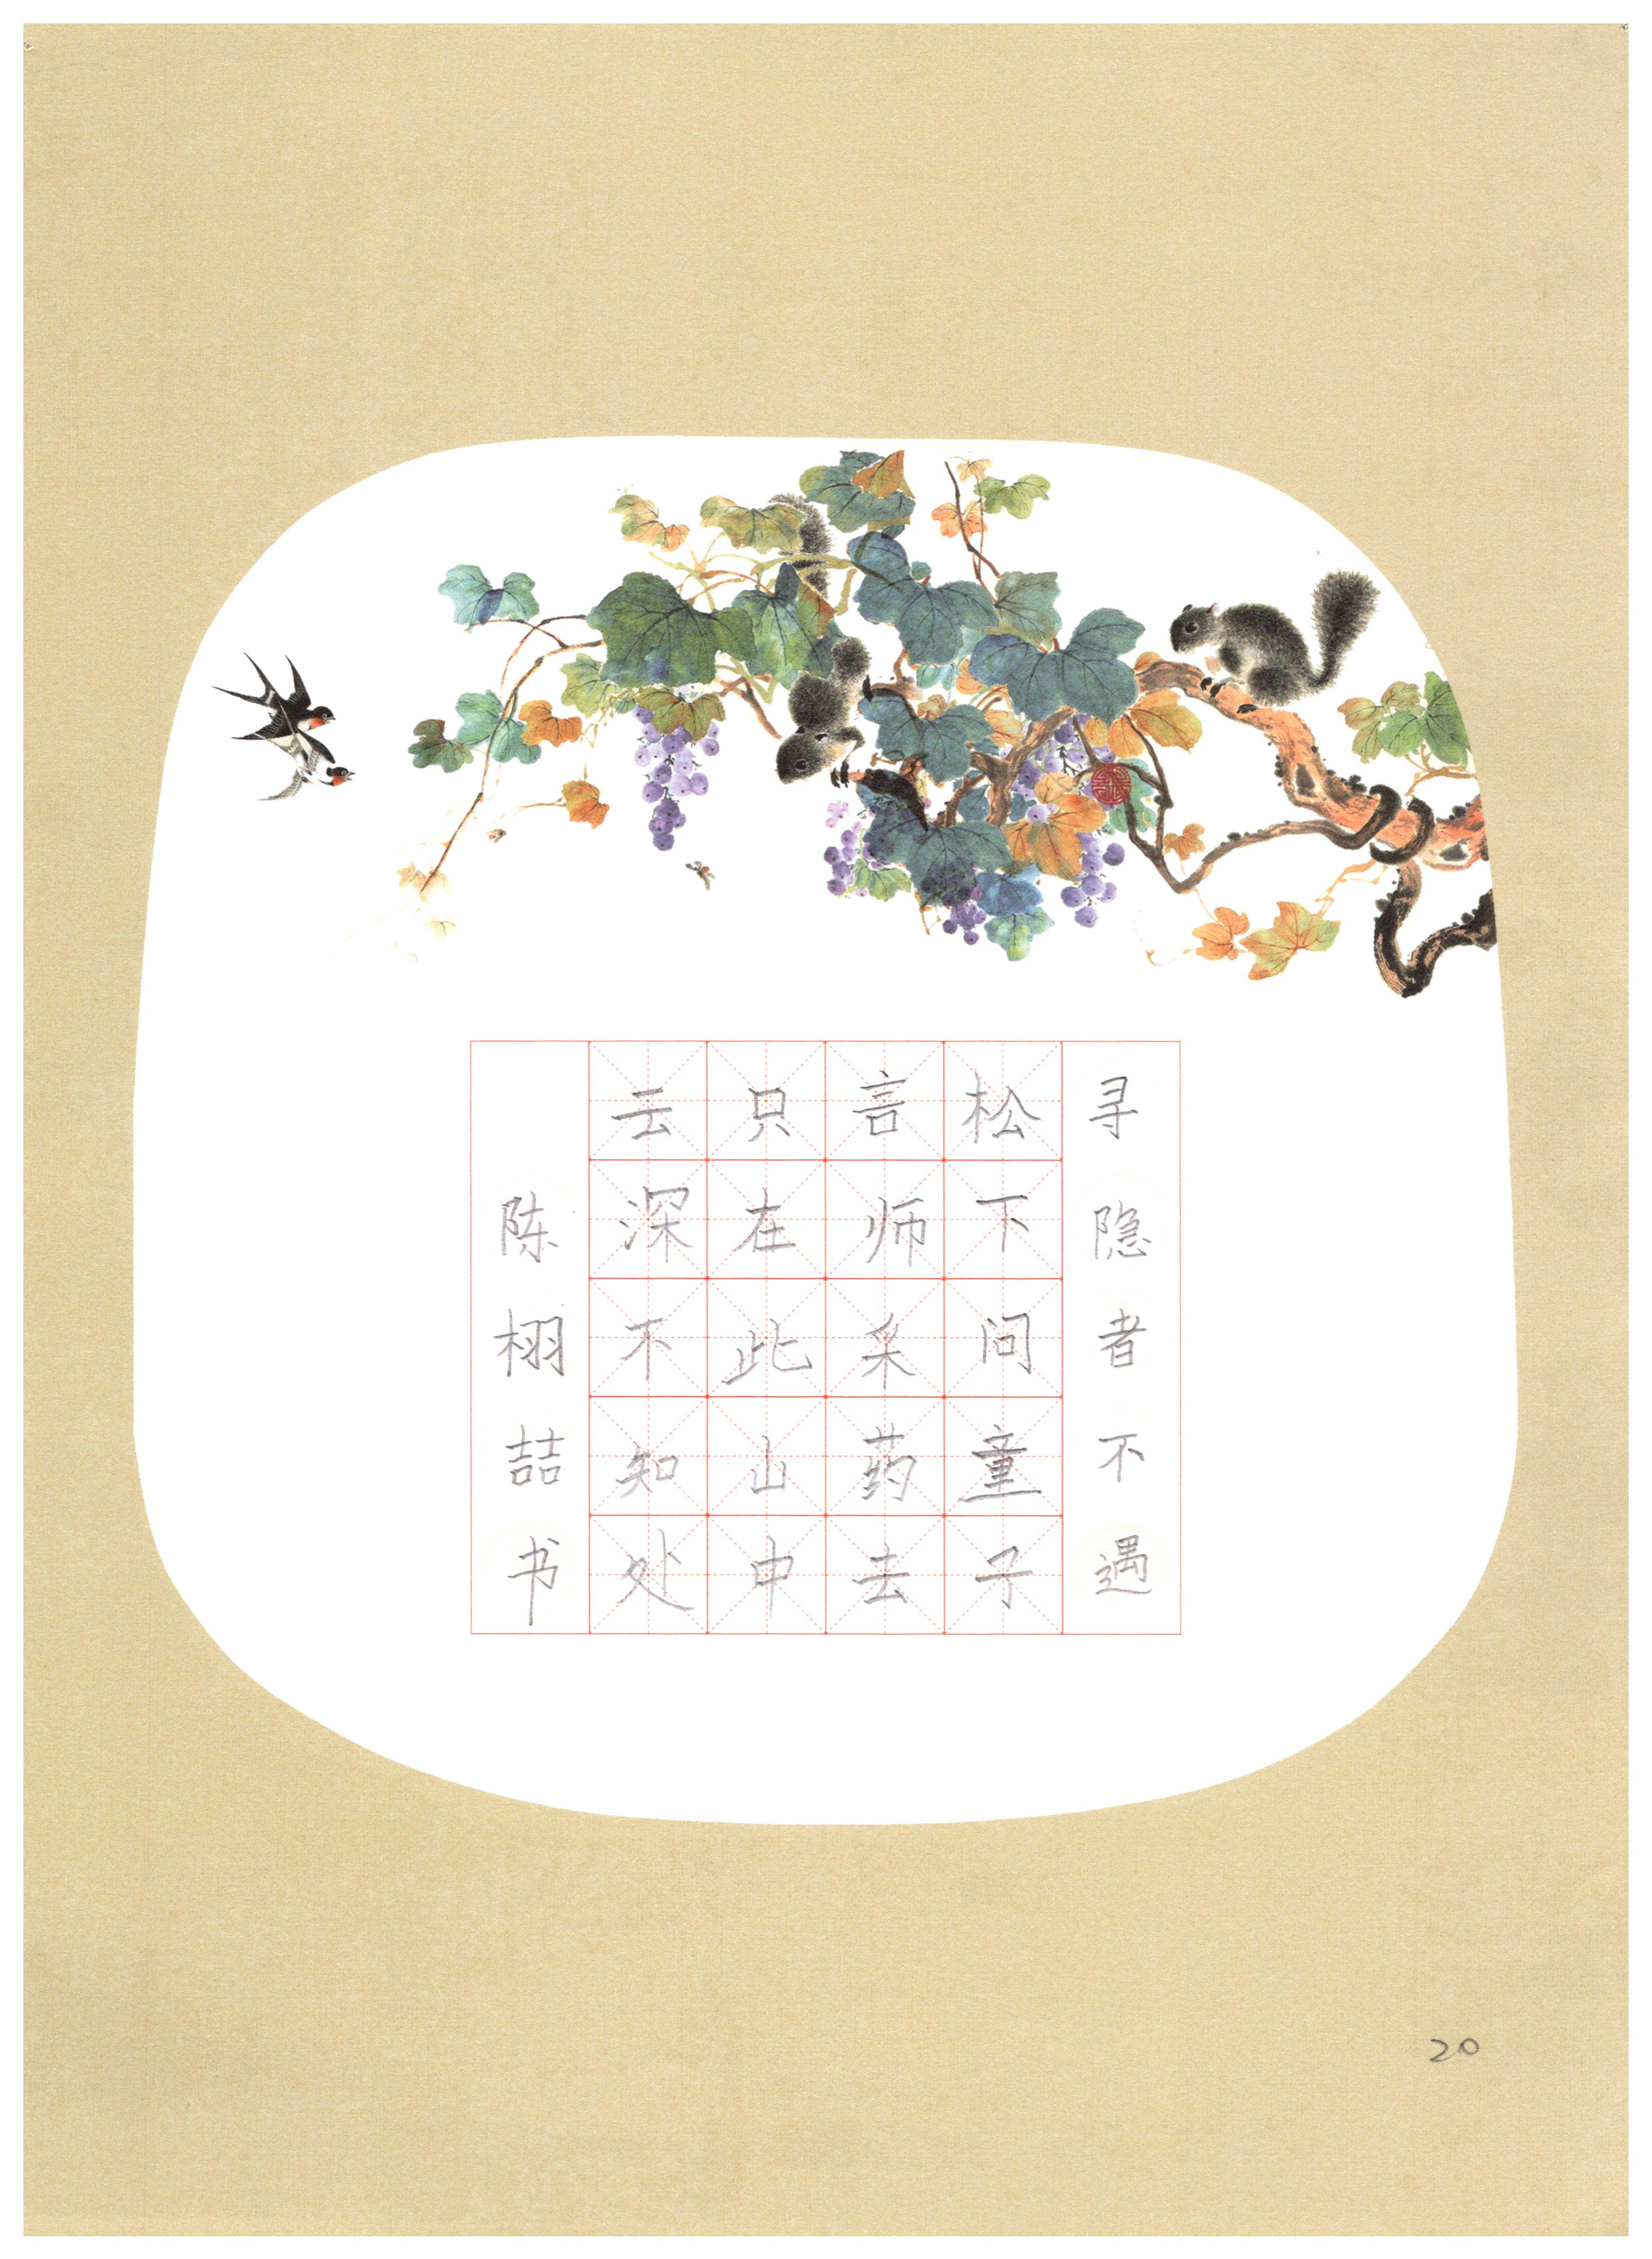 寻隐者不遇
松下问童子
言师采药去
只在此山中
云深不知处
陈栩喆书
20